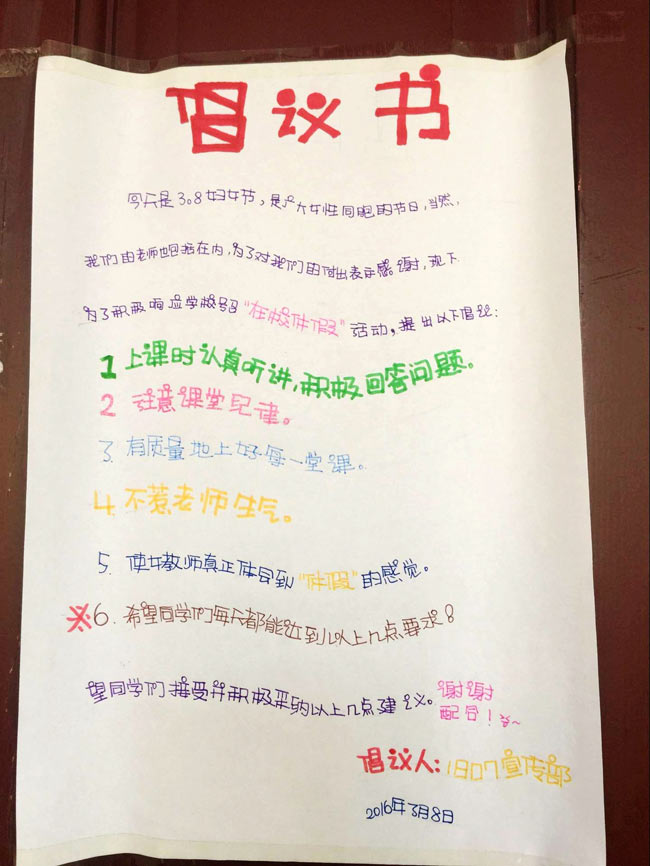 倡议书
今天是3.8妇女节,是广大女性同胞的节日,当然,
我们的老师也包括在内,为了对我们的付出表示感谢,现下
为了积极响应学校号召“在校休假”活动,提出以下倡议:
1 上课时认真听讲,积极回答问题。
2 注意课堂纪律。
3. 有质量地上好每一堂课。
4. 不惹老师生气。
5. 使女教师真正体会到“休假”的感觉。
※6. 希望同学们每天都能达到以上几点要求!
望同学们接受并积极采纳以上几点建议。谢谢
配合!
倡议人:1807宣传部
2016年3月8日